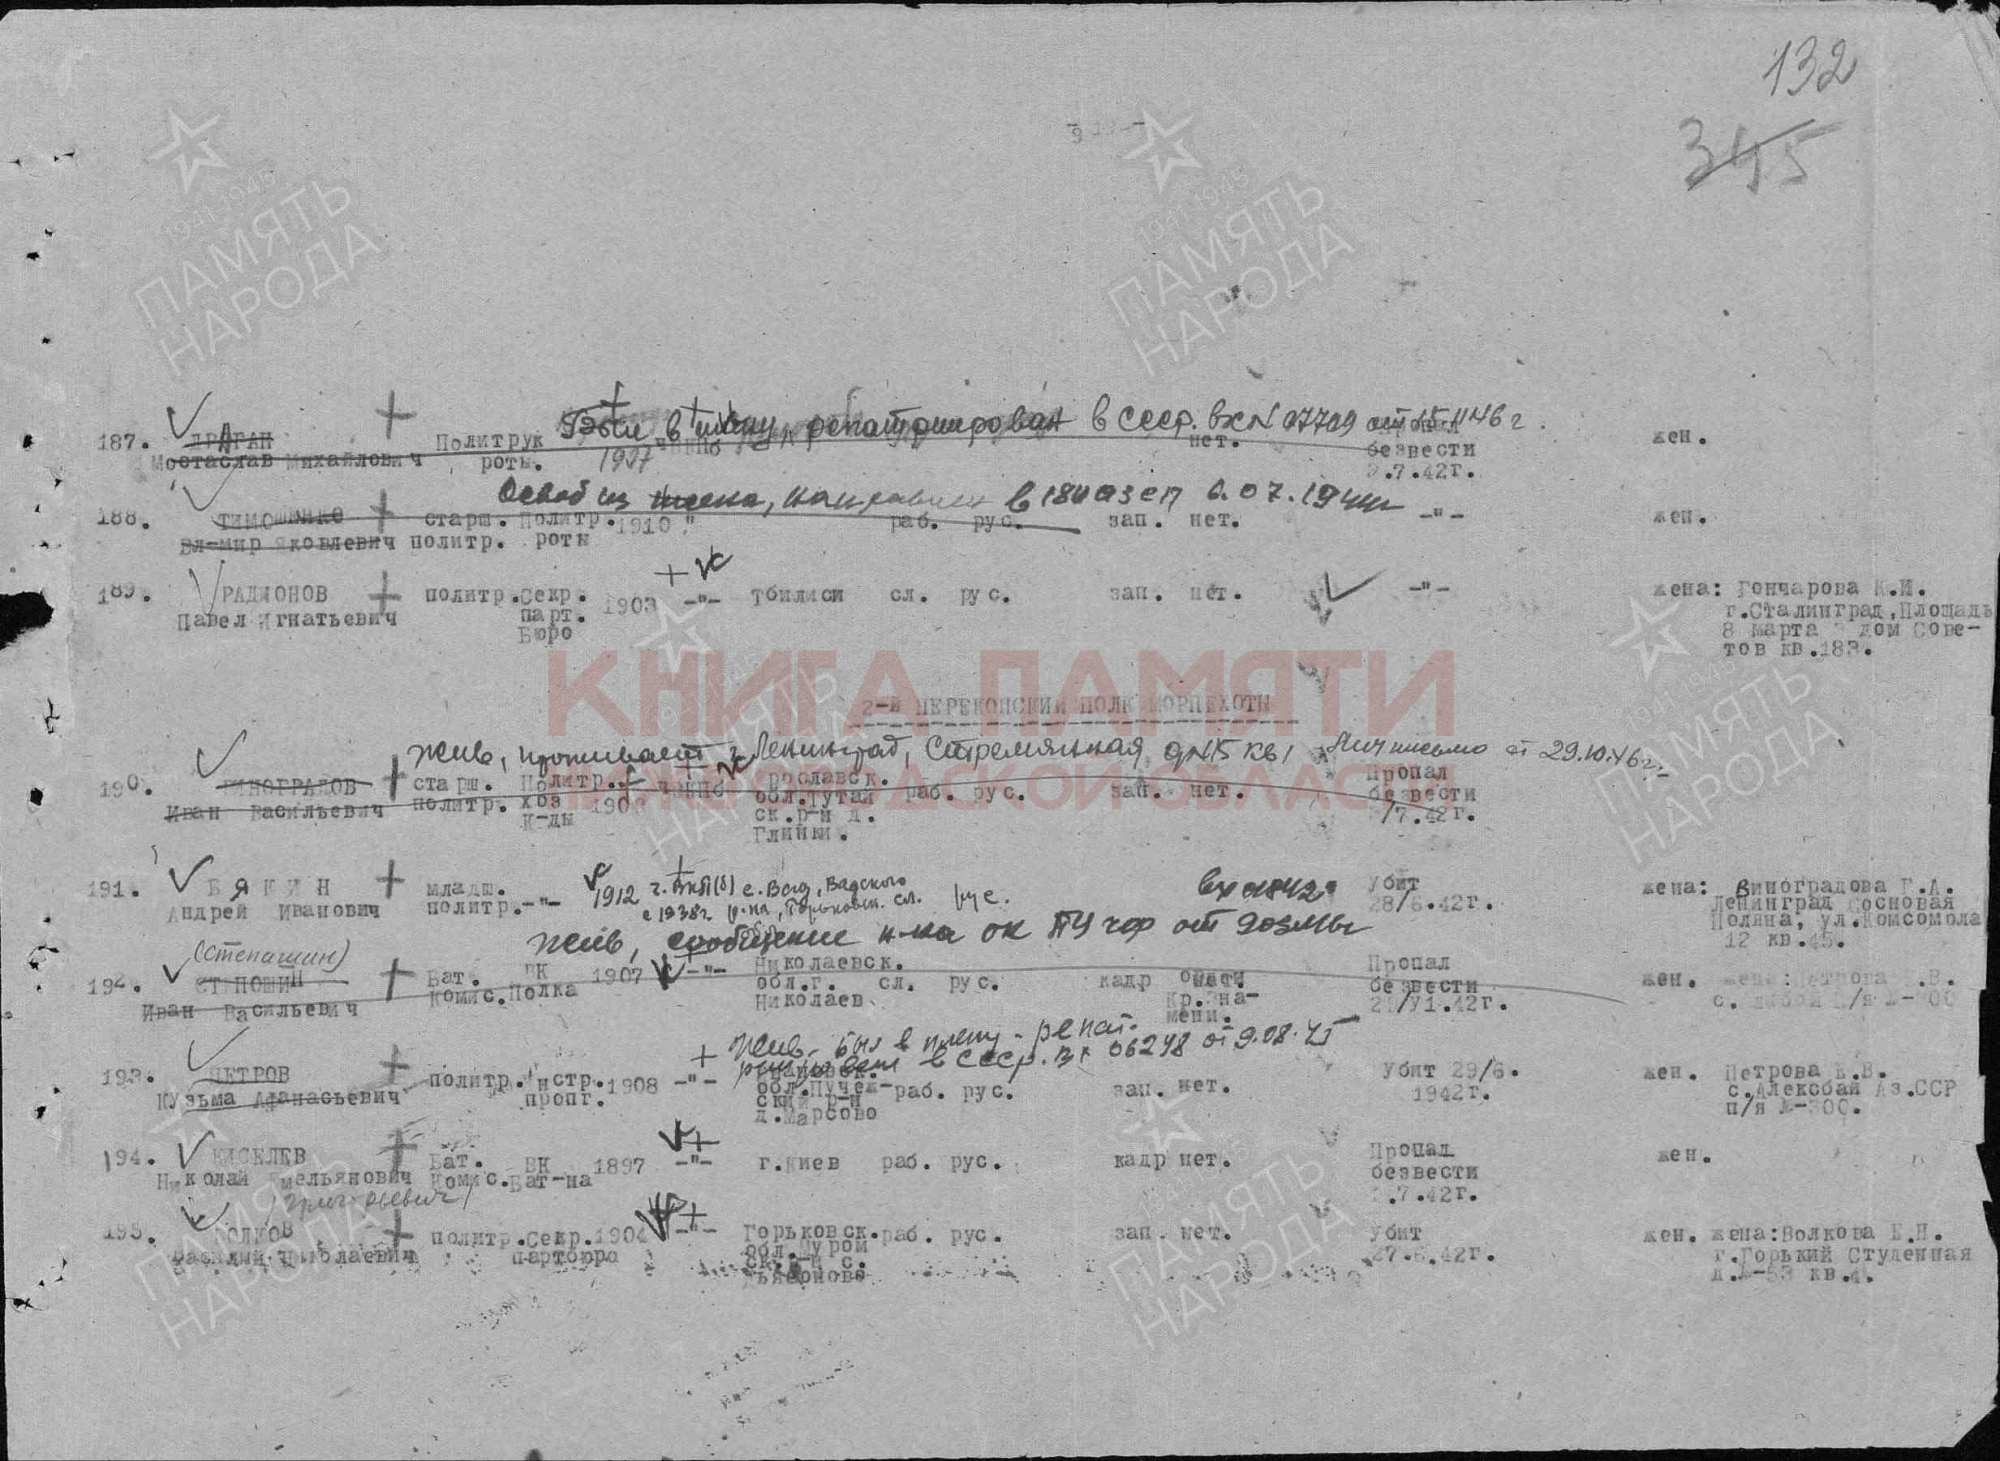 132
345
187. ДРАГАН
Мостаслав Михайлович
Политрук
роты.
1907
Был в плену, репатриирован в СССР. вх N 07709 от
нет.
безвести
.7.42г.
жен.
188. ТИМОШЕНКО
Вл-мир Яковлевич
старш. Политр. 1910 "
политр. роты
Освоб из плена, направлен в
раб. рус. зап. нет. -"- жен.
189. РАДИОНОВ
Павел Игнатьевич
политр. Секр. 1903 -"- Тбилиси сл. рус. зап. нет. -"-
парт.
Бюро
жена: Гончарова
г.Сталинград, Площадь
8 марта дом Сове-
тов кв.183.
2-й ПЕРЕКОПСКИЙ ПОЛК МОРПЕХОТЫ
Жив, проживает г. Ленинград, Стремянная д N 15 кв 1 Лич письмо от 29.10.46г.
190. ВИНОГРАДОВ
Иван Васильевич
старш. Политр.
политр. хоз
к-ды
обл.Тутай
ск.р-н д.
Глинки.
раб. рус. зап. нет.
Пропал
безвести
/7.42г.
191. БЯКИН
Андрей Иванович
младш.
политр. -"- 1912 ч. ВКП(б) с. Вад, Вадского
с 1938г. р-на, Горьковск. сл. рус.
Убит
28/6.42г.
жена: Виноградова Г.А.
Ленинград Сосновая
Поляна, ул.Комсомола
12 кв.45.
Жив, сообщение н-ка ок ПУ чф от
(Степашин)
192. СТЕПОШИН
Иван Васильевич
Бат. ВК 1907 -"- Николаевск.
Комис. Полка обл.г. сл. рус. кадр
Николаев
Кр.Зна-
мени.
Пропал
безвести
жен.
Жив. Был в плену - репат-
в СССР. Вх 06248 от 9.08.
193. ПЕТРОВ
Кузьма Афанасьевич
политр. 1908 -"-
пропг.
обл.Пучеж-
ский р-н
д.Марсово
раб. рус. зап. нет.
Убит 29/6.
1942г.
жен. Петрова Е.В.
с.Алексбай Аз.ССР
п/я №-300.
194. КИСЕЛЕВ
Николай Емельянович
/Григорьевич/
Бат. ВК 1897 -"- г.Киев раб. рус. кадр нет.
Комис. Бат-на
Пропал
безвести
.7.42г.
жен.
195. ВОЛКОВ
Василий Николаевич
политр. Секр. 1904 -"- Горьковск. раб. рус. зап. нет.
партбюро
обл.Муром
ск.р-н с.
Убит
27.6.42г.
жен. жена:Волкова Е.Н.
г.Горький Студенная
д.№-53 кв.4.
КНИГА ПАМЯТИ
1941-1945
ПАМЯТЬ
НАРОДА